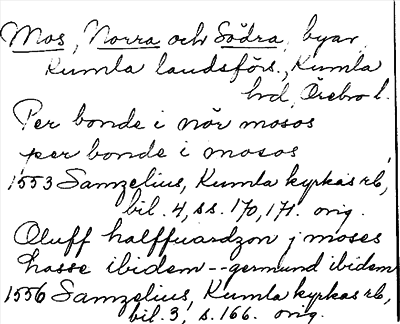 Mos, Norra och Södra, byar,
Kumla landsförs., Kumla
hd, Örebro l.
Per bonde i nör mosos
per bonde i mosos
1553 Samzelius, Kumla kyrkas rb,
bil. 4, ss. 170, 171. orig.
Oluff halffuardzon j moses
hasse ibidem -- germund ibidem
1556 Samzelius, Kumla kyrkas rb,
bil. 3, s. 166. orig.